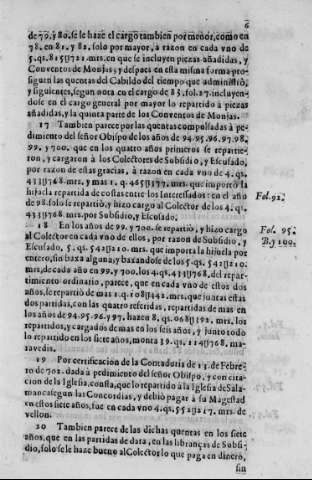 6
de 79. y 80. se le haze el cargo tambien por menor, como en
78. en 81. y 82. solo por mayor, à razon en cada vno de
5. qs. 815∥721. mrs. en que se incluyen piezas añadidas, y
Conventos de Monjas; y despues en esta misma forma prosiguen
las quentas del Cabildo del tiempo que administrò,
y siguientes, segun nota en el cargo de 83. fol. 27. incluyendose
en el cargo general por mayor lo repartido à piezas
añadidas, y la quinta parte de los Conventos de Monjas.
17 Tambien parece por las quentas compulsadas à pedimento
del señor Obispo de los años de 94. 95. 96. 97. 98.
99. y 700. que en los quatro años primeros se repartieron,
y cargaron à los Colectores de Subsidio, y Escusado,
por razon de estas gracias, à razon en cada vno de 4.
433∥768. mrs. y mas 1. q. 465∥177. mrs. que importò la
hijuela repartida de costas entre los Interessados: en el año
de 98. solo se repartiò, y hizo cargo al Colector de los 4. qs.
433∥768. mrs. por Subsidio, y Escusado.
Fol. 92.
18 En los años de 99. y 700. se repartiò, y hizo cargo
al Colector en cada vno de ellos, por razon de Subsidio, y
Escusado, 5. qs. 542∥210. mrs. que importa la hijuela por
entero, sin baxa alguna, y baxandose de los 5. qs. 542∥210.
mrs. de cada año en 99. y 700. los 4. qs. 433∥768. del repartimiento
ordinario, parece, que en cada vno de estos dos
años, se repartiò de mas 1. q. 108∥442. mrs. que juntas estas
dos partidas, con las quatro referidas, repartidas de mas en
los años de 94. 95. 96. y 97. hazen 8. qs. 068∥392. mrs. los
repartidos, y cargados de mas en los seis años, y junto todo
lo repartido en los siete años, monta 39. qs. 114∥768. maravedis.
Fol. 95.
B. y 100.
19 Por certificacion de la Contaduria de 13. de Febrero
de 702. dada à pedimento del señor Obispo, y con citacion
de la Iglesia, consta, que lo repartido à la Iglesia de Salamanca
segun las Concordias, y debiò pagar à su Magestad
en estos siete años, fue en cada vno 4. qs. 552∥17. mrs. de
vellon.
20 Tambien parece de las dichas quentas en los siete
años, que en las partidas de data, en las libranças de Subsidio,
solo se le haze bueno al Colector lo que paga en dinero,
sin